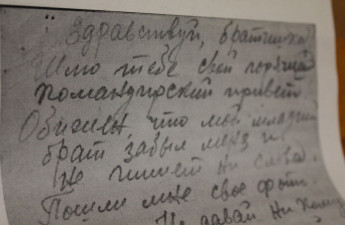 Здравствуй, братишка!
Шлю тебе свой горячий
командирский привет.
Обижен, что мой младший
брат забыл меня и
не пишет ни слова.
Пошли мне свое фото.
Не давай ни кому